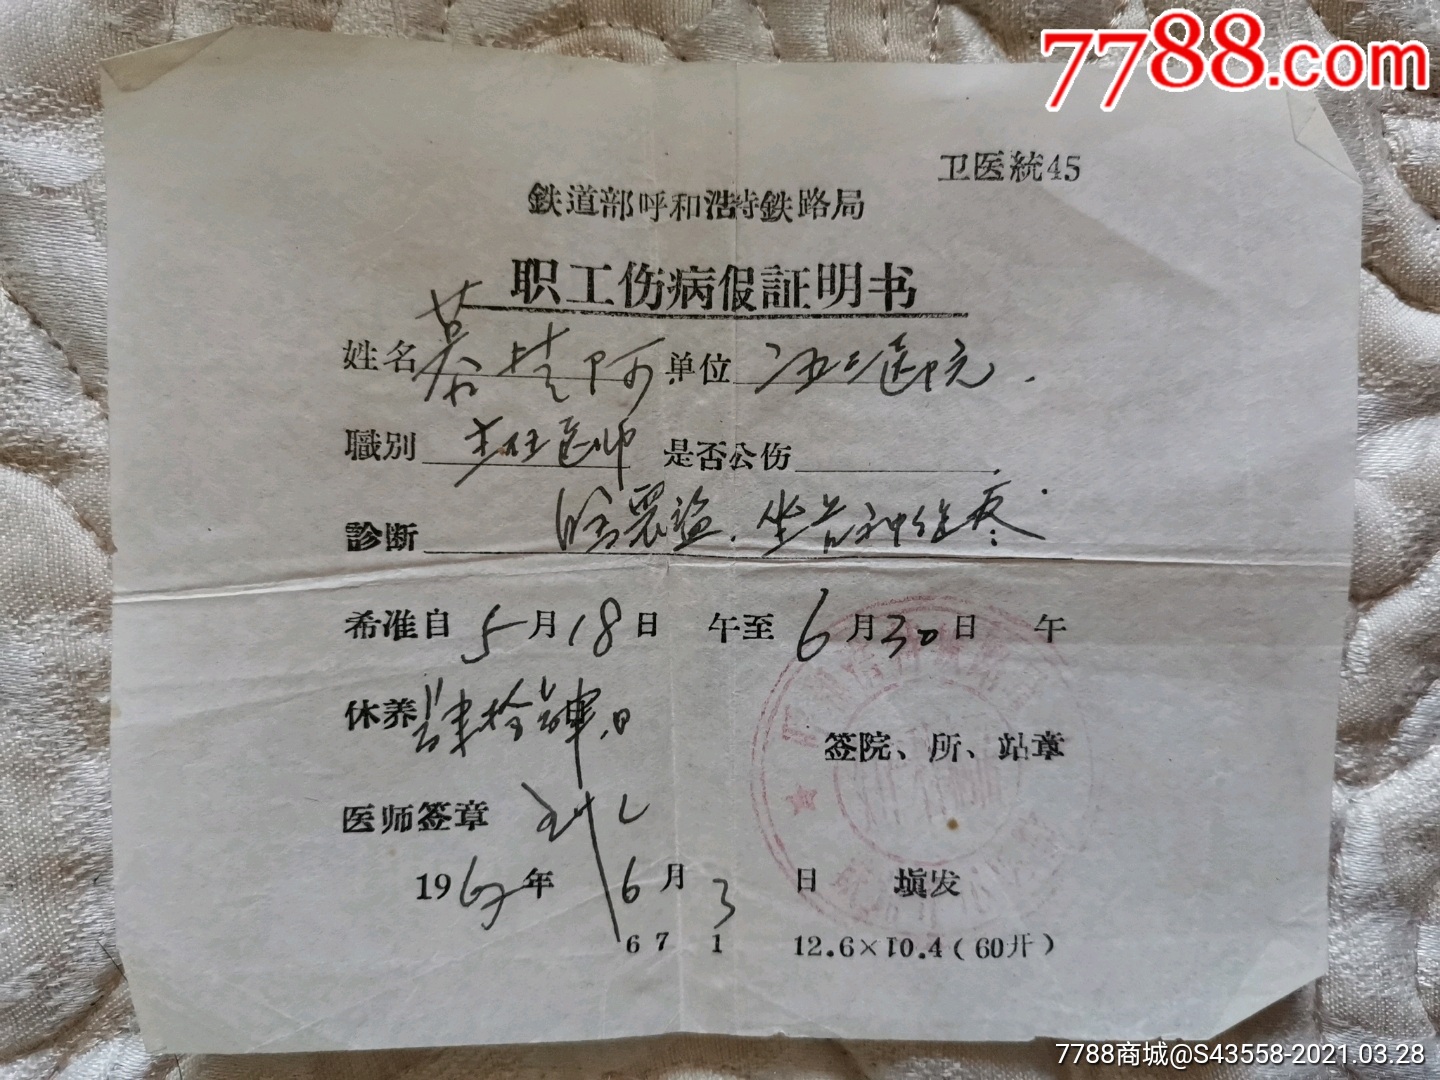 7788.com
卫医統45
鉄道部呼和浩特鉄路局
职工伤病假証明书
姓名 单位 医院
職別 主任医师 是否公伤
診断 脑震盪、坐骨神经疼
希准自5月18日 午至6月30日 午
休养肆拾肆日
签院、所、站章
医师签章
1967年6月3日 填发
67 1 12.6×10.4(60开)
7788商城@S43558-2021.03.28